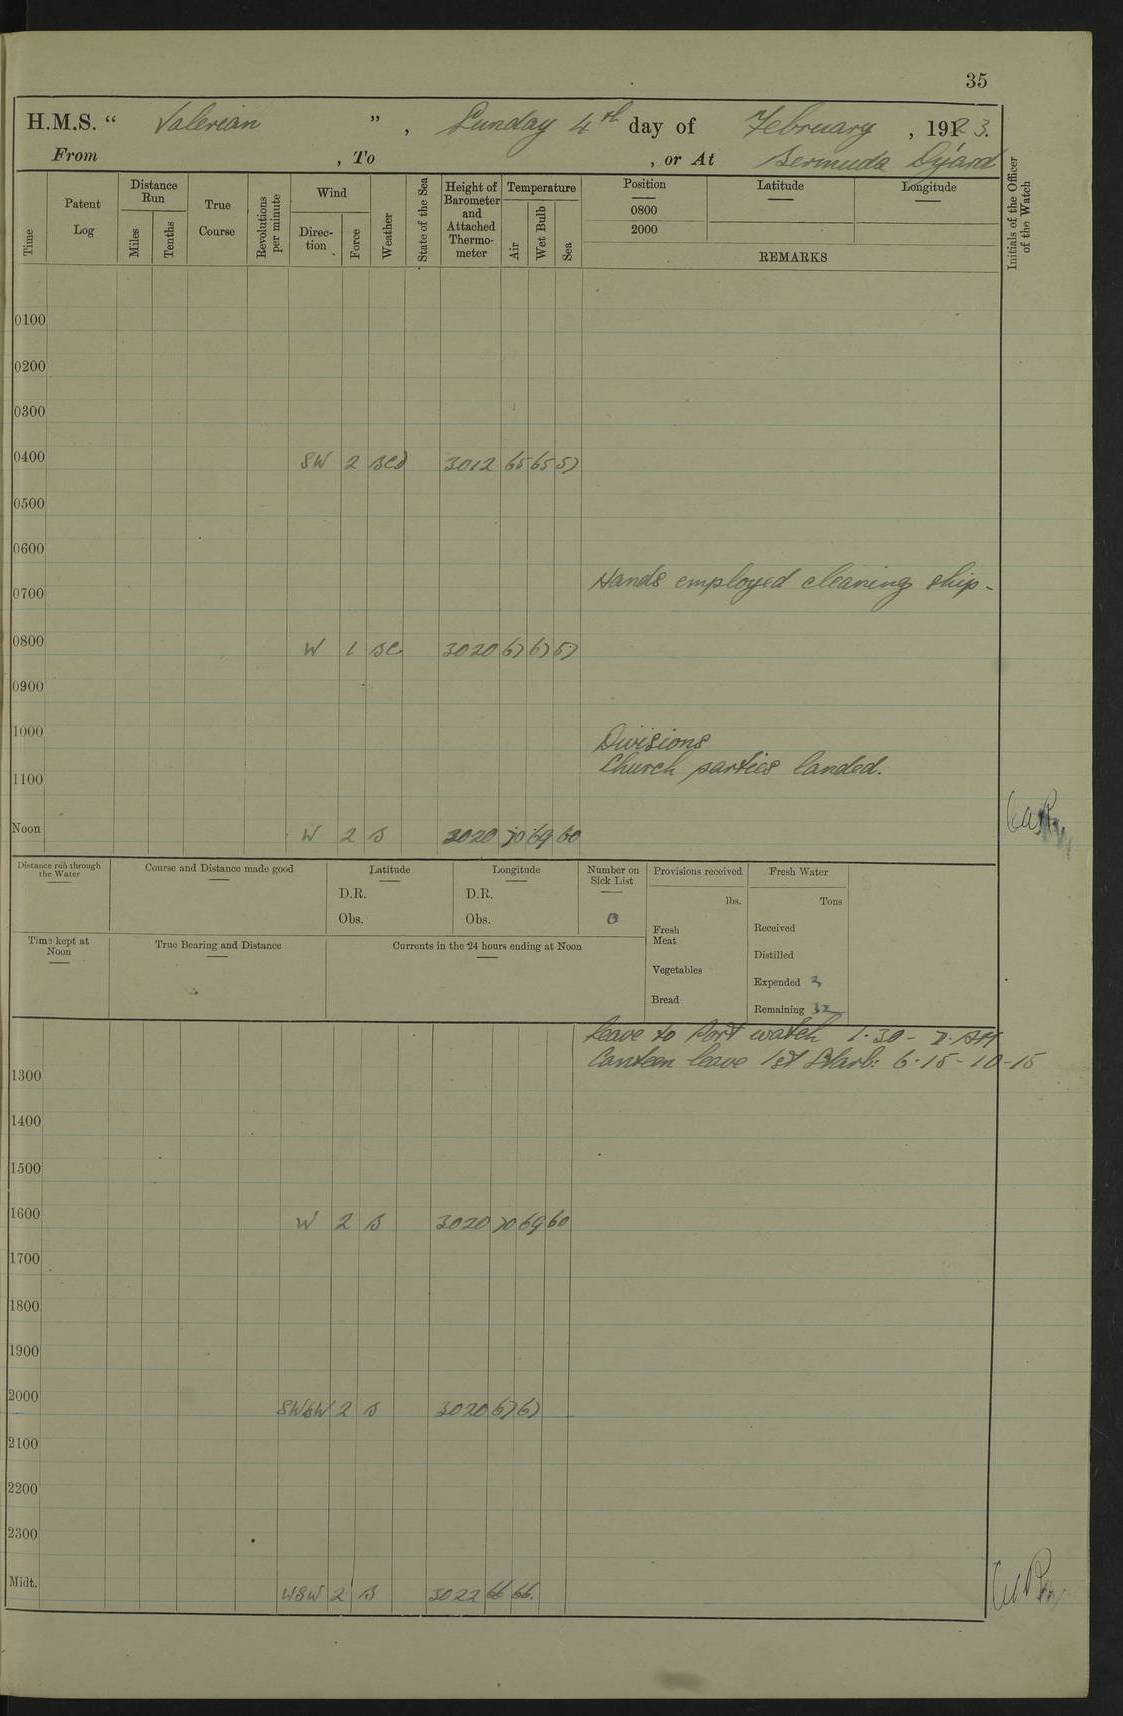 35
H.M.S. “ Valerian ” , Sunday 4th day of February , 1923.
From , To , or At Bermuda Dyard
Time
Patent Log
Distance Run
Miles
Tenths
True Course
Revolutions per minute
Wind
Direction
Force
Weather
State of the Sea
Height of Barometer and Attached Thermometer
Temperature
Air
Wet Bulb
Sea
Position
0800
2000
Latitude
Longitude
REMARKS
Initials of the Officer of the Watch
0100
0200
0300
0400 SW 2 bcd 3012 65 65 57
0500
0600
Hands employed cleaning ship -
0700
0800 W 1 bc 3020 67 67 57
0900
1000
Divisions
Church parties landed.
1100
Noon W 2 b 3020 70 69 60
Distance run through the Water
Course and Distance made good
Latitude
D.R.
Obs.
Longitude
D.R.
Obs.
Number on Sick List
0
Provisions received
lbs.
Fresh Meat
Vegetables
Bread
Fresh Water
Tons
Received
Distilled
Expended 3
Remaining 32
Time kept at Noon
True Bearing and Distance
Currents in the 24 hours ending at Noon
Leave to Port watch 1.30 - 7. AM
Canteen leave 1st Starb: 6.15 - 10-15
1300
1400
1500
1600 W 2 b 3020 70 69 60
1700
1800
1900
2000 SWbW 2 b 3020 67 67
2100
2200
2300
Midt. WSW 2 b 3022 66 66.